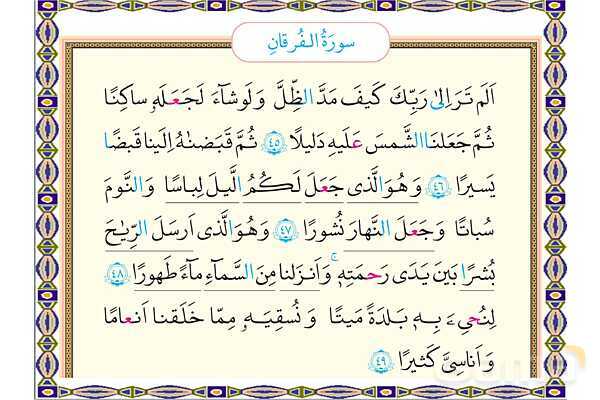 سورَةُ الفُرقانِ
اَلَم تَرَ اِلىٰ رَبِّكَ كَيفَ مَدَّ الظِّلَّ وَ لَو شاءَ لَجَعَلَهٗ ساكِنًا
ثُمَّ جَعَلنَا الشَّمسَ عَلَيهِ دَليلًا ٤٥ ثُمَّ قَبَضنٰهُ اِلَينا قَبضًا
يَسيرًا ٤٦ وَ هُوَ الَّذى جَعَلَ لَكُمُ الَّيلَ لِباسًا وَ النَّومَ
سُباتًا وَ جَعَلَ النَّهارَ نُشورًا ٤٧ وَ هُوَ الَّذى اَرسَلَ الرِّيٰحَ
بُشرًا بَينَ يَدَى رَحمَتِهٖ ۚ وَ اَنزَلنا مِنَ السَّماءِ ماءً طَهورًا ٤٨
لِنُحۦِىَ بِهٖ بَلدَةً مَيتًا وَ نُسقِيَهٗ مِمّا خَلَقنا اَنعامًا
وَ اَناسِىَّ كَثيرًا ٤٩